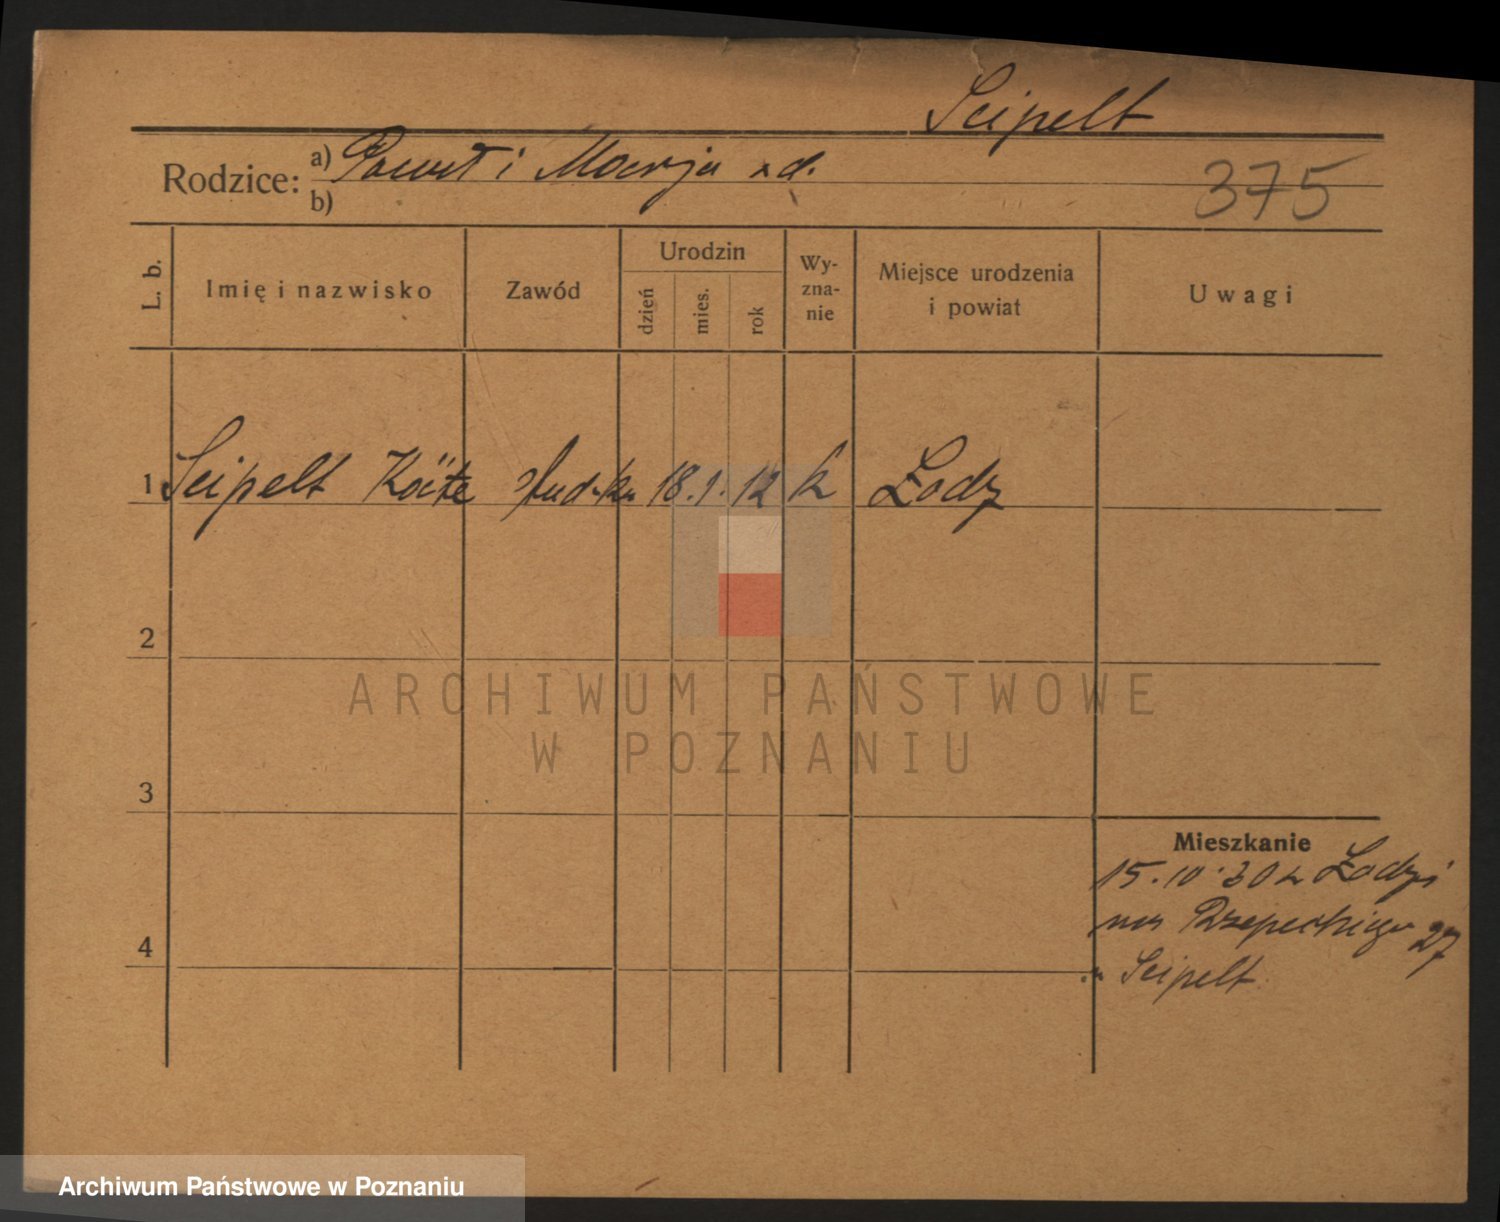 Seipelt
Rodzice: a) Paweł i Marja z d.
b)
375
L. b.
Imię i nazwisko
Zawód
Urodzin
dzień
mies.
rok
Wy-
zna-
nie
Miejsce urodzenia
i powiat
Uwagi
1 Seipelt Käte stud-ka 18. 1. 12 k Łodz
2
ARCHIWUM PAŃSTWOWE
W POZNANIU
3
Mieszkanie
15.10.30 z Łodzi
na Rzepeckiego 27
4
u Seipelt
Archiwum Państwowe w Poznaniu